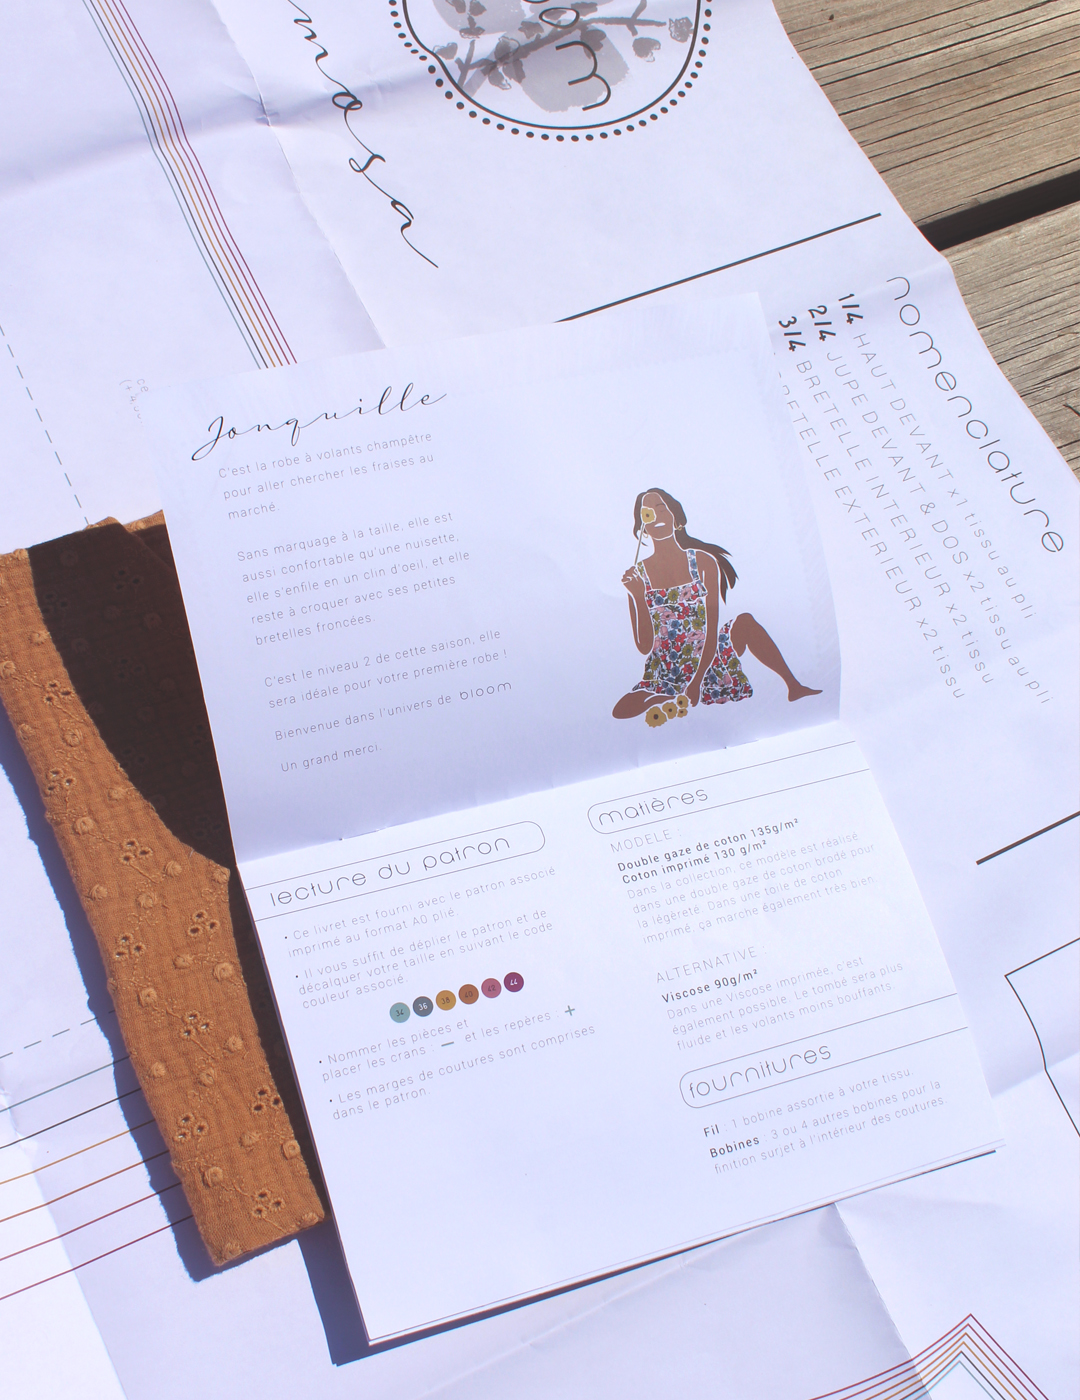 mosa
oom
nomenclature
1/4 HAUT DEVANT x1 tissu au pli
2/4 JUPE DEVANT & DOS x2 tissu au pli
3/4 BRETELLE INTERIEUR x2 tissu
BRETELLE EXTÉRIEUR x2 tissu
Jonquille
C'est la robe à volants champêtre
pour aller chercher les fraises au
marché.
Sans marquage à la taille, elle est
aussi confortable qu'une nuisette,
elle s'enfile en un clin d'oeil, et elle
reste à croquer avec ses petites
bretelles froncées.
C'est le niveau 2 de cette saison, elle
sera idéale pour votre première robe !
Bienvenue dans l'univers de bloom
Un grand merci.
lecture du patron
• Ce livret est fourni avec le patron associé
imprimé au format A0 plié.
• Il vous suffit de déplier le patron et de
décalquer votre taille en suivant le code
couleur associé.
34 36 38 40 42 44
• Nommer les pièces et
placer les crans : — et les repères : +
• Les marges de coutures sont comprises
dans le patron.
matières
MODELE :
Double gaze de coton 135g/m²
Coton imprimé 130 g/m²
Dans la collection, ce modèle est réalisé
dans une double gaze de coton brodé pour
la légèreté. Dans une toile de coton
imprimé, ça marche également très bien.
ALTERNATIVE :
Viscose 90g/m²
Dans une Viscose imprimée, c'est
également possible. Le tombé sera plus
fluide et les volants moins bouffants.
fournitures
Fil : 1 bobine assortie à votre tissu.
Bobines : 3 ou 4 autres bobines pour la
finition surjet à l'intérieur des coutures.